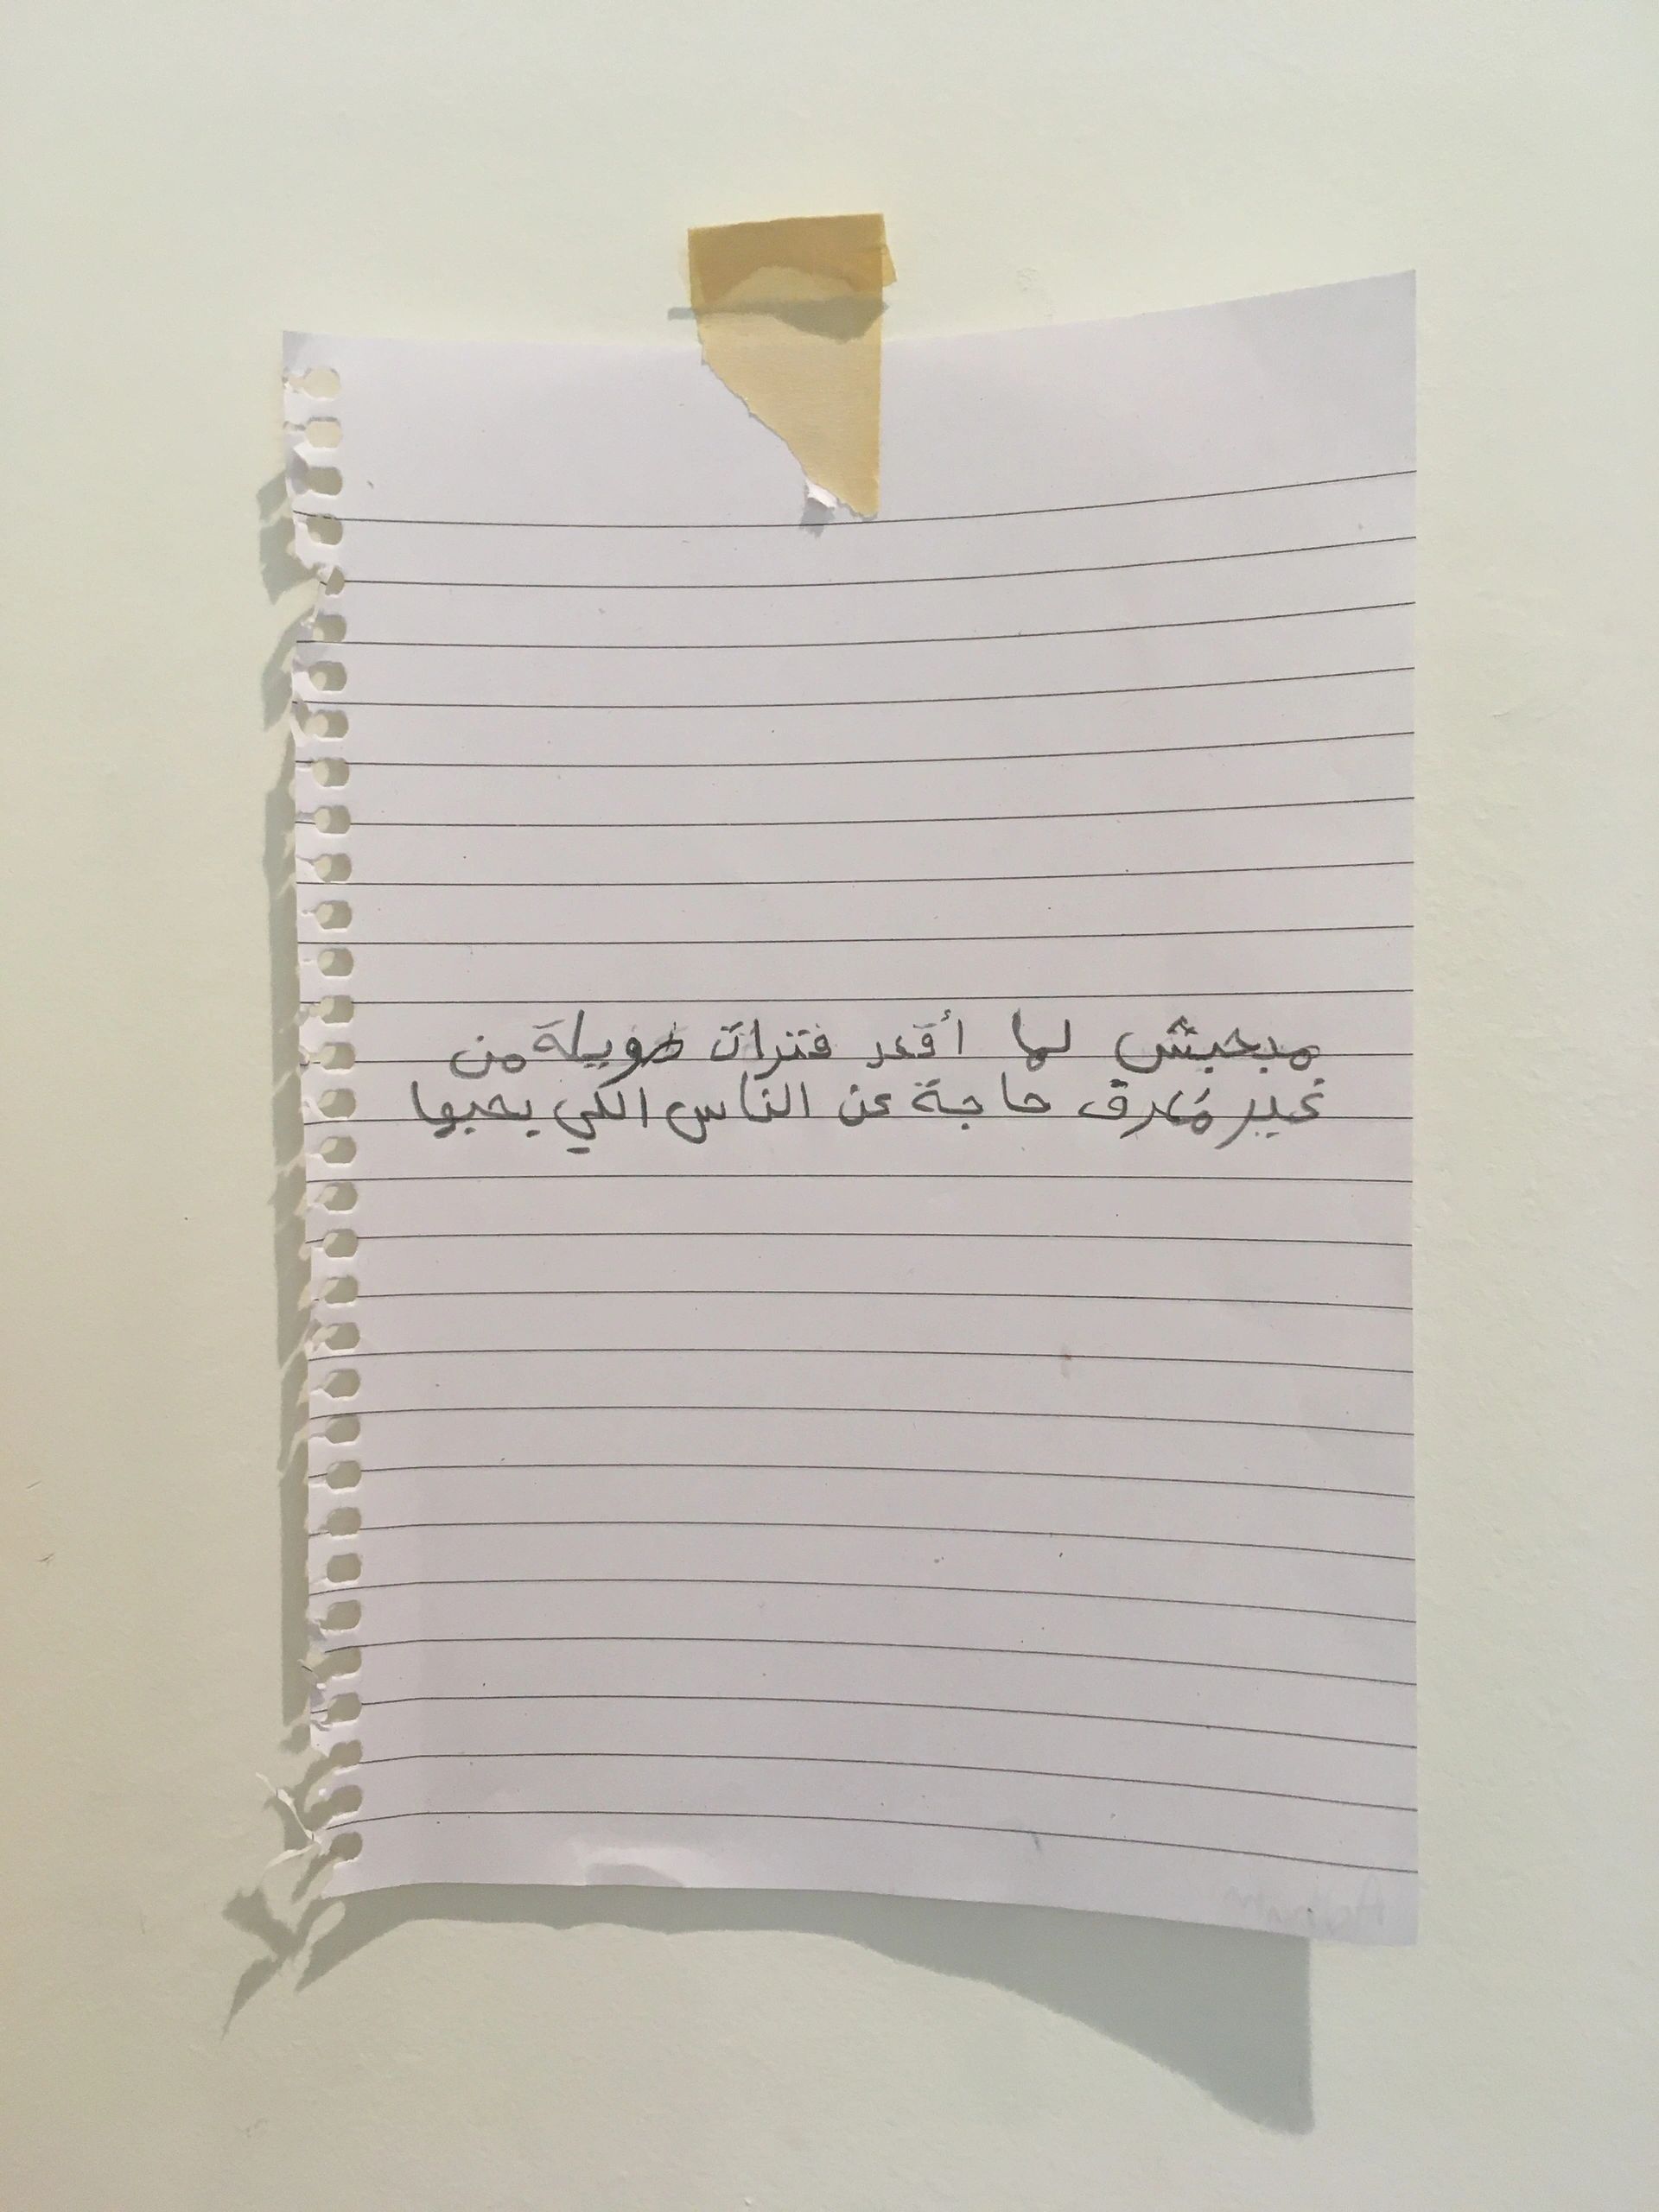 مبحبش لما أقعد فترات طويلة من
غير معرف حاجة عن الناس اللي بحبها